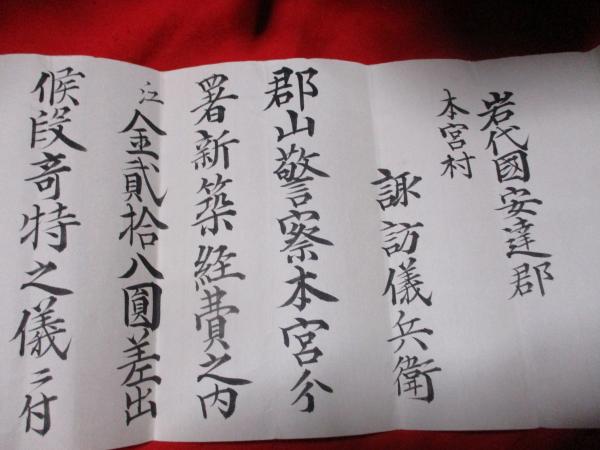 岩代國安達郡
本宮村
諏訪儀兵衛
郡山警察本宮分
署新築経費之内
江金貳拾八圓差出
候段奇特之儀ニ付